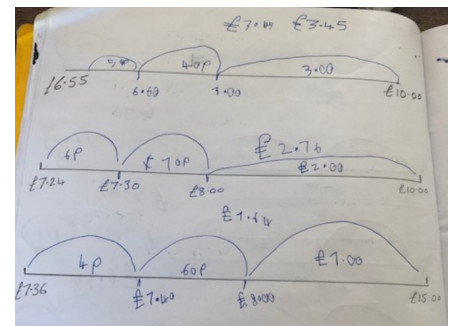 £3.45
40p 3.00
£6.55 6.60 7.00 £10.00
£2.76
6P £ 70p £2.00
£7.24 £7.30 £8.00 £10.00
£1.64
4P 60p £1.00
£7.36 £7.40 £8.00